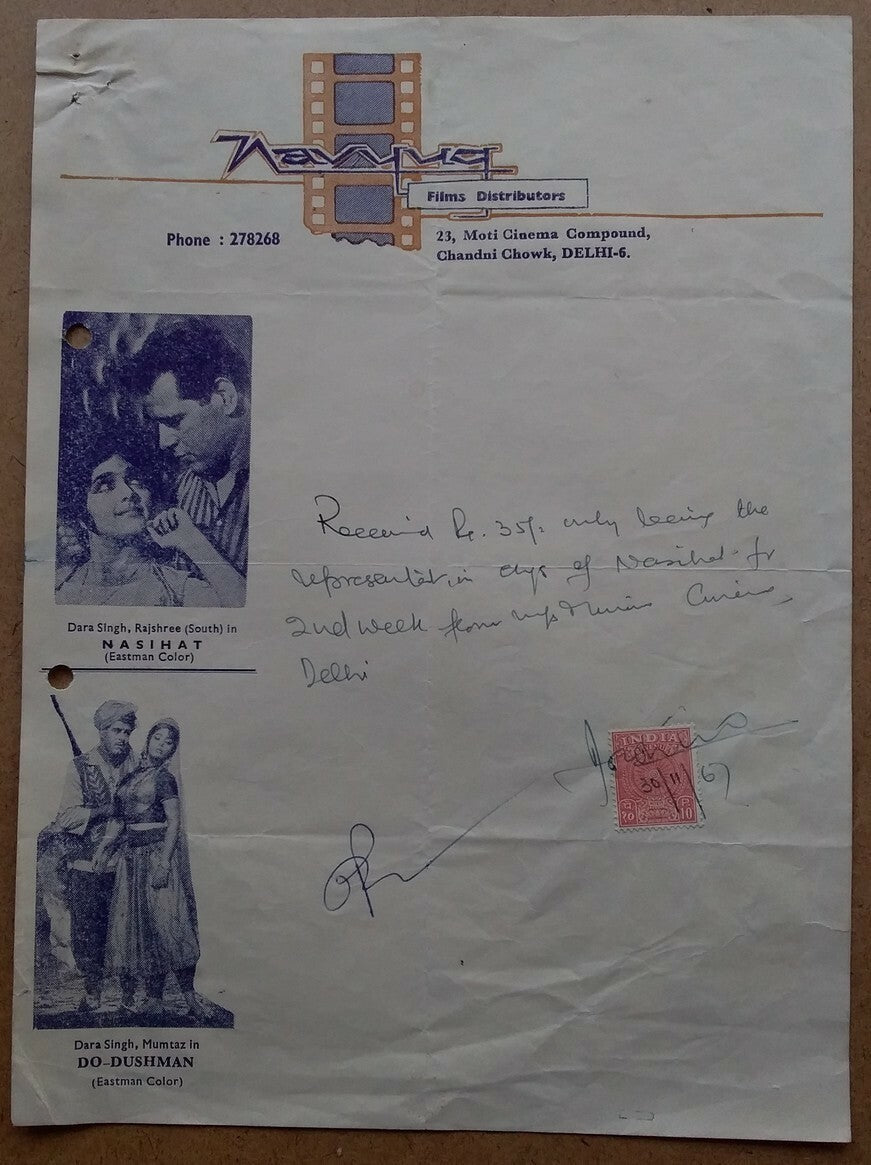 Navyug
Films Distributors
Phone : 278268
23, Moti Cinema Compound,
Chandni Chowk, DELHI-6.
Dara Singh, Rajshree (South) in
NASIHAT
(Eastman Color)
Received Rs. 35/- only being the
representative of Nasihat for
2nd week from
Delhi
INDIA
30/11/67
10
Dara Singh, Mumtaz in
DO-DUSHMAN
(Eastman Color)